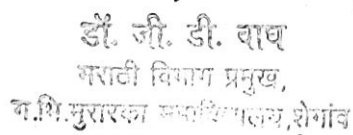 डॉ. जी. डी. वाघ
मराठी विभाग प्रमुख,
ग.भि.मुरारका महाविद्यालय,शेगांव